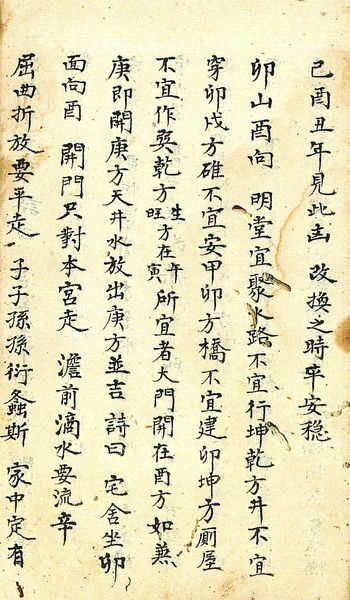 己酉丑年見此凶 改換之時卒安穏
卯山酉向 明堂宜聚水路不宜行坤乾方井不宜
穿卯戌方碓不宜安甲卯方橋不宜建卯坤方厠屋
不宜作奠乾方生旺方在午寅所宜者大門開在酉方如蒸
庚即開庚方天井水放出庚方並吉 詩曰 宅舍坐卯
面向酉 開門只對本宮走 澹前滴水要流辛
屈曲折放要平走 子子孫孫衍螽斯 家中定有